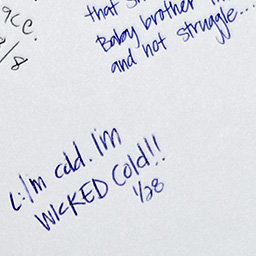 acc.
/8
that s
Baby brother
and not struggle...
L: I'm cold. I'm
WICKED Cold!!
1/28